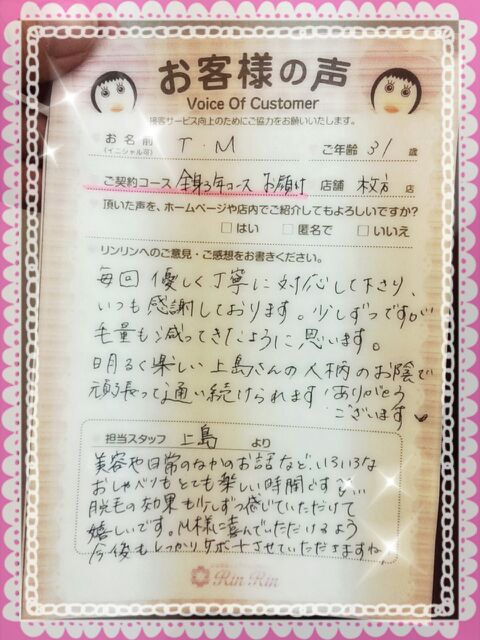 お客様の声
Voice Of Customer
接客サービス向上のためにご協力をお願いいたします。
お名前 (イニシャル可) T・M ご年齢 31 歳
ご契約コース 全身3年コース お顔付 店舗 枚方 店
頂いた声を、ホームページや店内でご紹介してもよろしいですか?
□ はい □ 匿名で □ いいえ
リンリンへのご意見・ご感想をお書きください。
毎回 優しく丁寧に対応して下さり、
いつも感謝しております。少しずつですが
毛量も減ってきたように思います。
明るく楽しい上島さんの人柄のお陰で
頑張って通い続けられます!ありがとう
ございます♥
担当スタッフ 上島 より
美容や日常のなかのお話など、いろいろな
おしゃべりもとても楽しい時間です
脱毛の効果も少しずつ感じていただけて
嬉しいです。M様に喜んでいただけるよう
今後もしっかりサポートさせていただきますね
Rin Rin